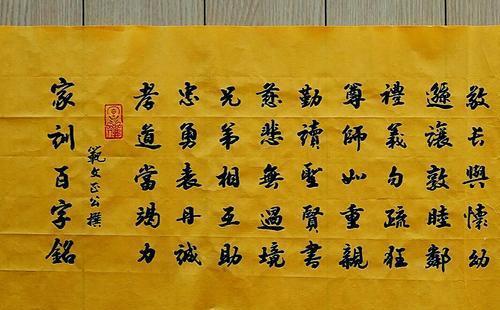 家訓百字銘
範文正公撰
孝道當竭力
忠勇表丹誠
兄弟相互助
慈悲無過境
勤讀聖賢書
尊師如重親
禮義勿疏狂
遜讓敦睦鄰
敬長與懷幼